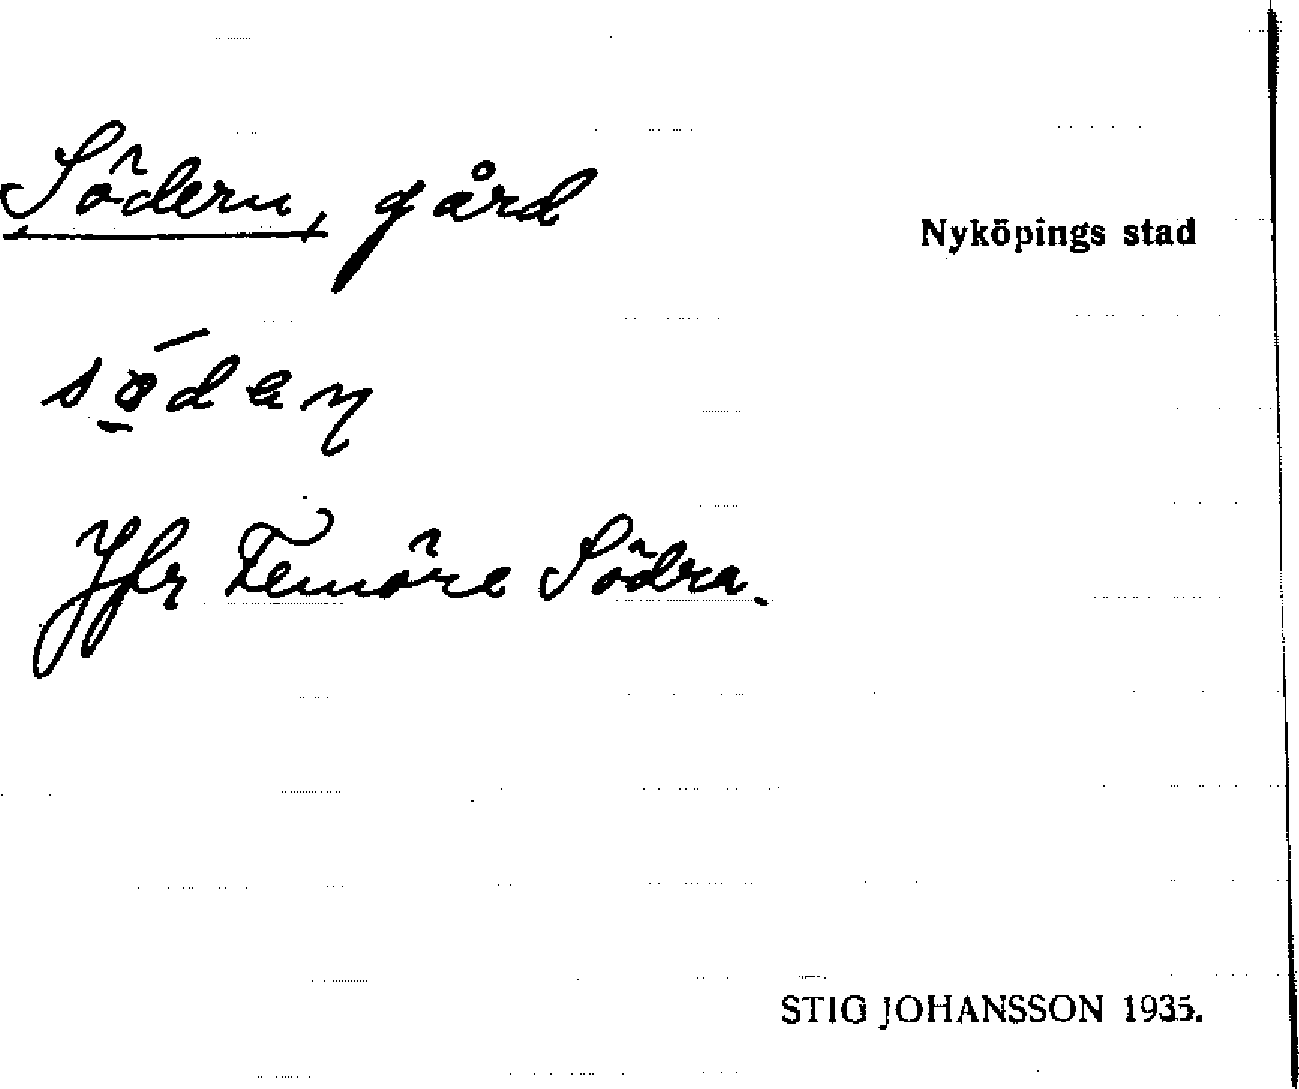 Södern, gård
Nyköpings stad
Jfr Femöre Södra.
STIG JOHANSSON 1935.